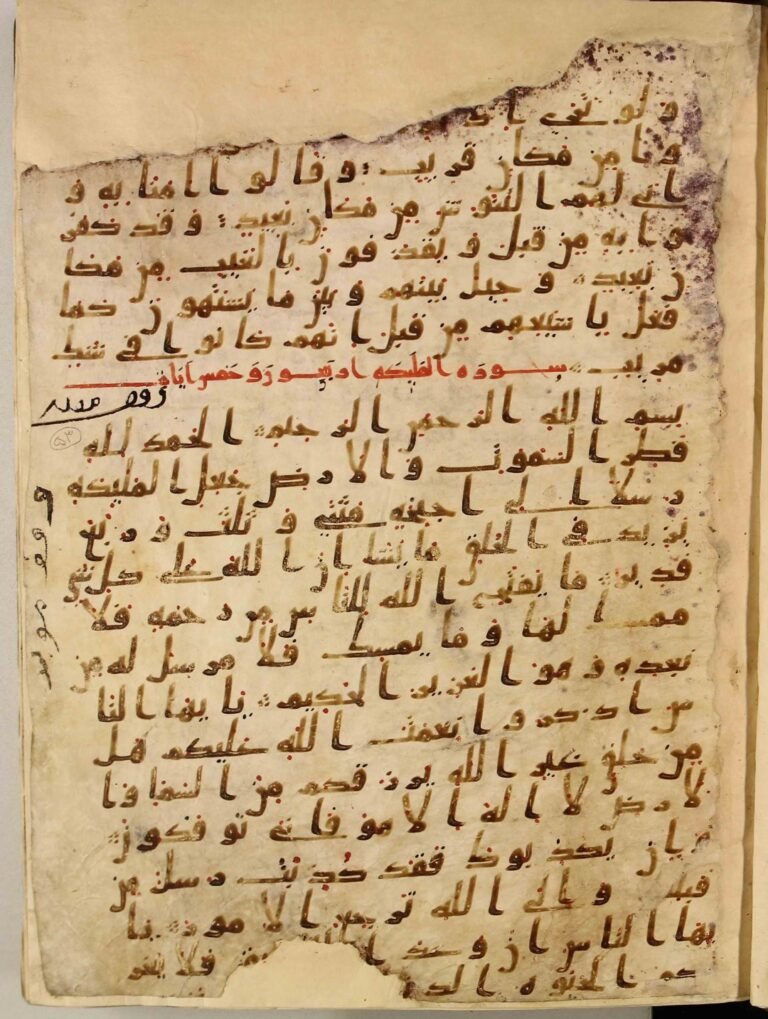 ولو ترى اذ
وا من مكان قريب وقالوا امنا به و
انى لهم التنوش من مكان بعيد وقد كفر
وا به من قبل ويقذفون بالغيب من مكا
ن بعيد وحيل بينهم وبين ما يشتهون كما
فعل باشيعهم من قبل انهم كانوا في شك
مريب سورة الملئكة اربعون وخمس ايات
وقف موبد
بسم الله الرحمن الرحيم الحمد لله
فطر السموت والارض جعل الملئكة
رسلا اولى اجنحة مثنى وثلث وربع
يزيد في الخلق ما يشا ان الله على كل شى
قدير ما يفتح الله للناس من رحمة فلا
ممسك لها وما يمسك فلا مرسل له من
بعده وهو العزيز الحكيم يايها النا
س اذكروا نعمت الله عليكم هل
من خلق غير الله يرزقكم من السما وا
لارض لا اله الا هو فانى توفكون
وان يكذبوك فقد كذبت رسل من
قبلك والى الله ترجع الامور يا
يها الناس ان وعد حق فلا تغر
نكم الحيوة الد
وقف موبد